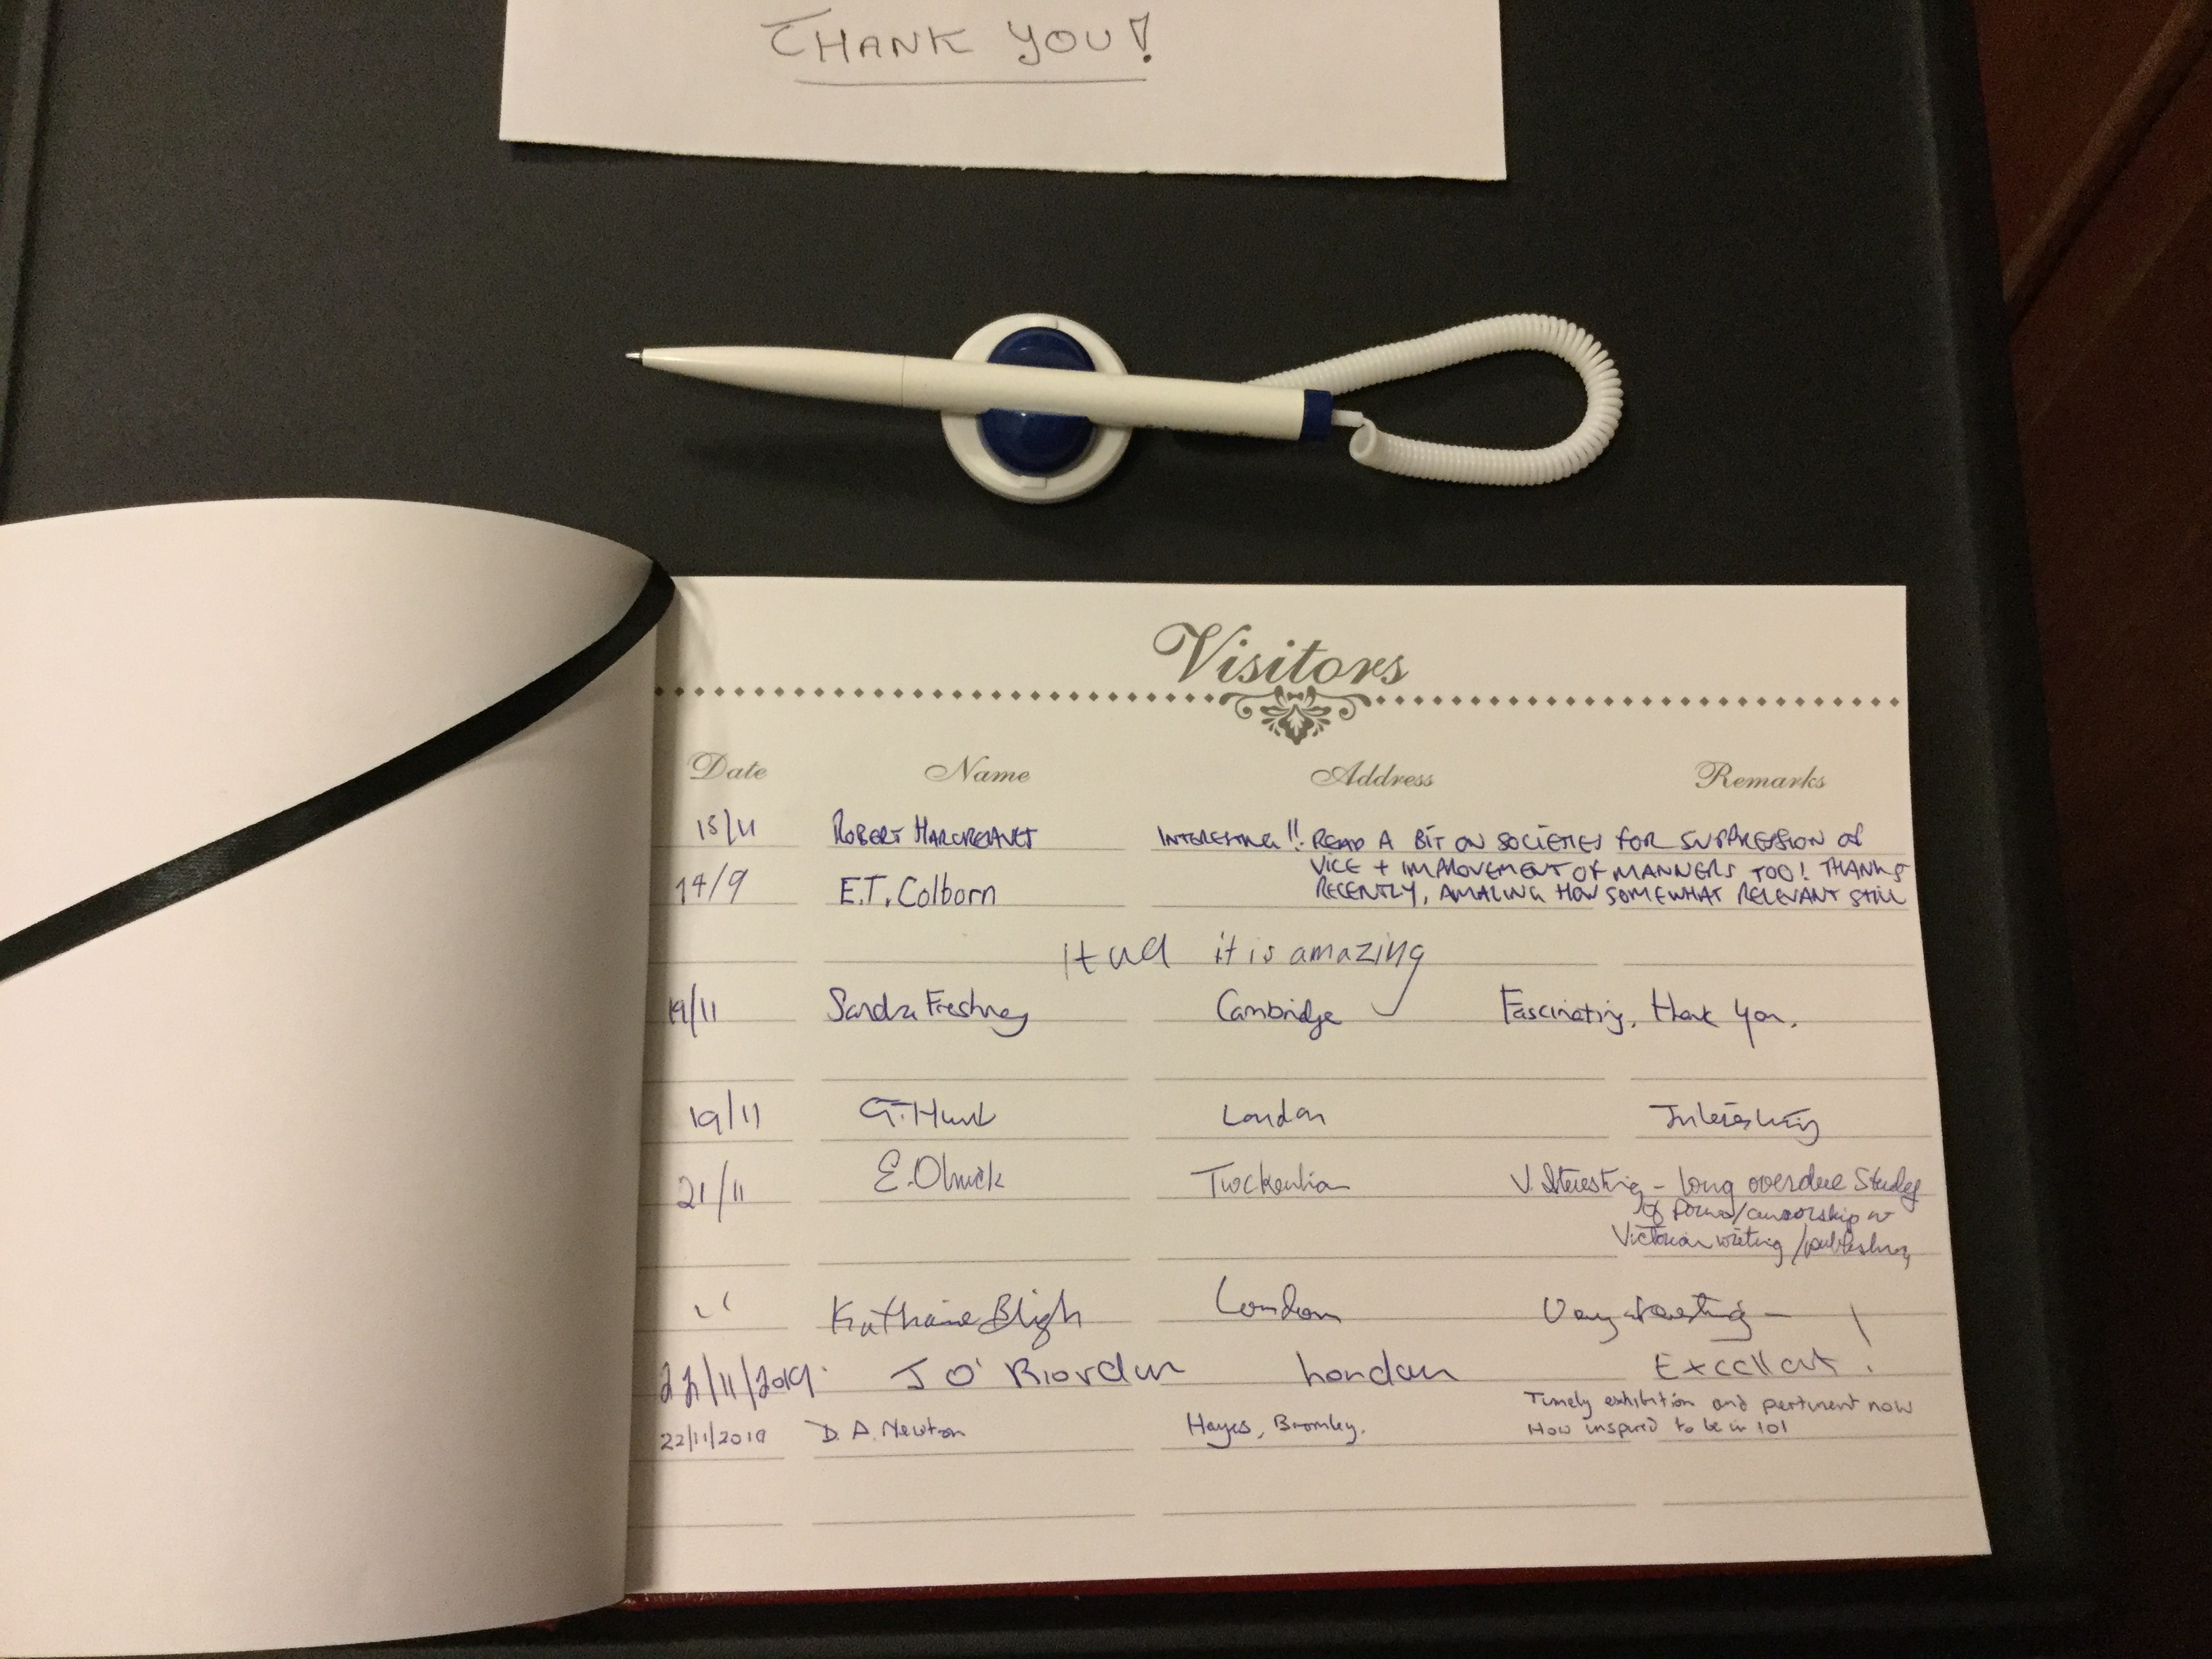 THANK YOU!
Visitors
Date Name Address Remarks
15/11 ROBERT INTERESTING!! READ A BIT ON SOCIETIES FOR SUPPRESSION OF
VICE + IMPROVEMENT OF MANNERS TOO! THANKS
14/9 E.T. Colborn RECENTLY, AMAZING HOW SOMEWHAT RELEVANT STILL
it is amazing
19/11 Sandra Freshney Cambridge Fascinating, thank you.
19/11 G. Hunt London Interesting
21/11 E. Twickenham V. Interesting - long overdue study
of porno/censorship
Victorian writing/publishing
" Katharine Bligh London Very interesting -
22/11/2019. J O'Riordan London Excellent!
Timely exhibition and pertinent now
22/11/2019 D. A. Newton Hayes, Bromley. How inspired to be in 101